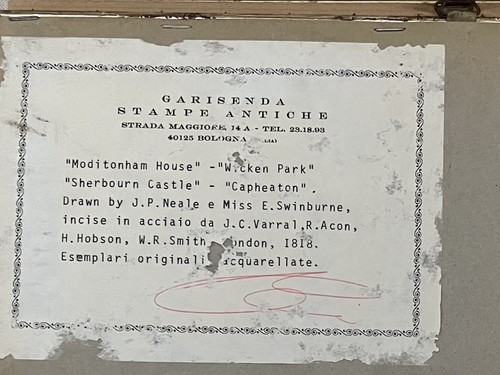 GARISENDA
STAMPE ANTICHE
STRADA MAGGIORE, 14 A - TEL. 23.18.93
40125 BOLOGNA
"Moditonham House" -"Wicken Park"
"Sherbourn Castle" - "Capheaton".
Drawn by J.P.Neale e Miss E.Swinburne,
incise in acciaio da J.C.Varral,R.Acon,
H.Hobson, W.R.Smith, London, I8I8.
Esemplari originali acquarellate.